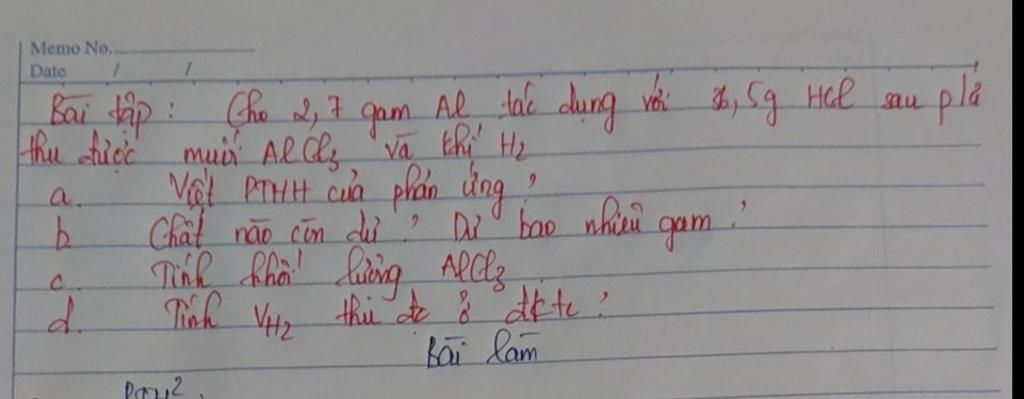 Memo No.
Date / /
Bài tập : Cho 2,7 gam Al tác dụng với 36,5g HCl sau pứ
thu được muối AlCl3 và khí H2
a. Viết PTHH của phản ứng ?
b Chất nào còn dư ? Dư bao nhiêu gam ?
c. Tính khối lượng AlCl3
d. Tính VH2 thu đc ở đktc ?
Bài làm